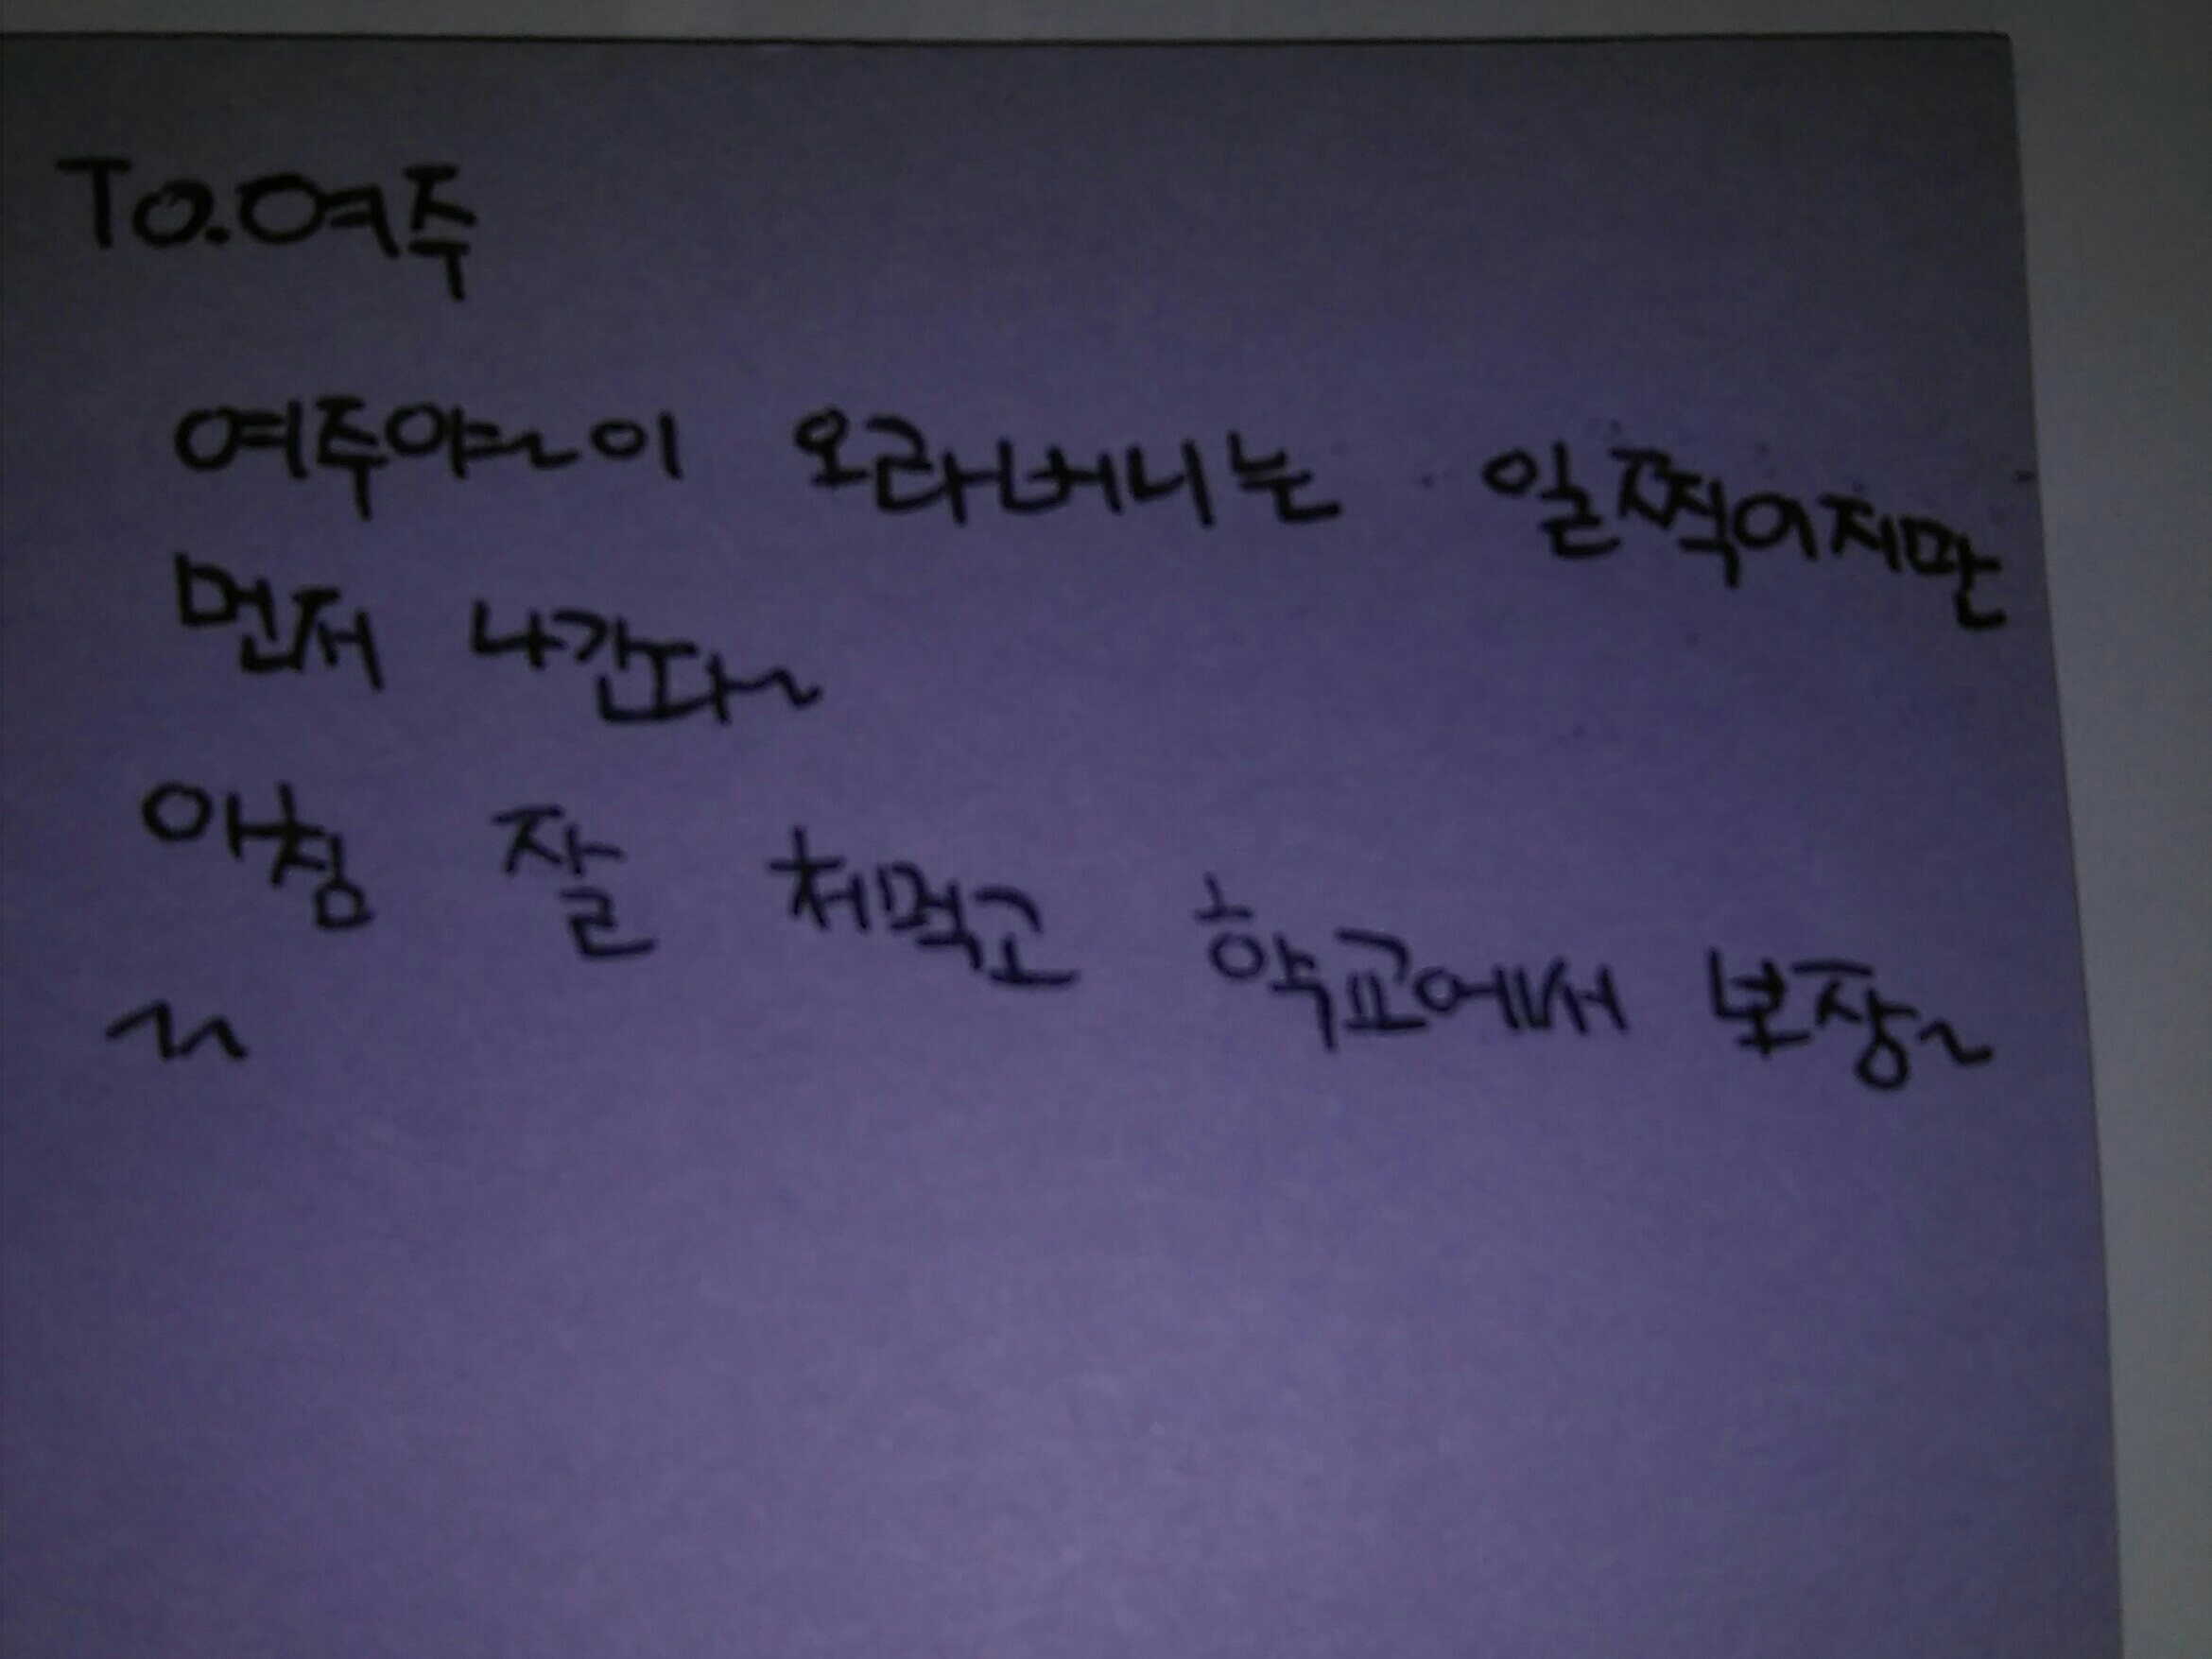 To.여주
여주야~이 오라버니는 일찍이지만
먼저 나간다~
아침 잘 처먹고 학교에서 보장~
~~